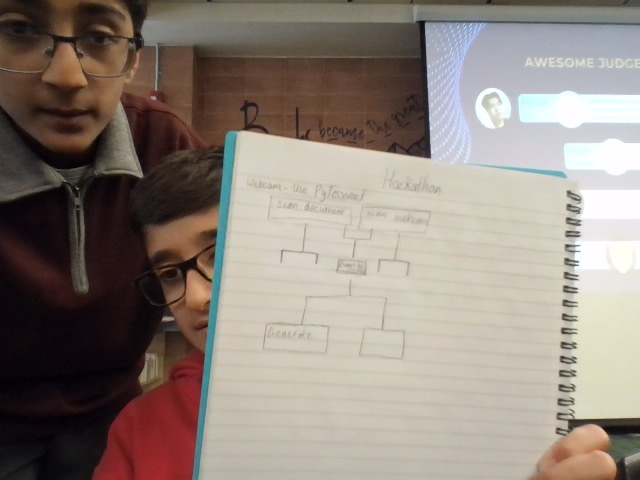 AWESOME JUDGE
became the great
Hackathon
Webcam - Use PyTesseract
Scan document
Scan webcam
Generate